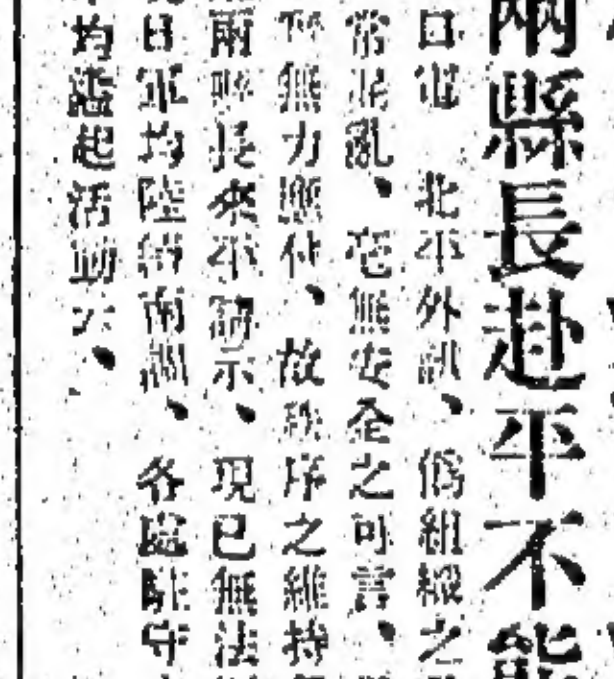 兩縣長赴平不能
日電 北平外訊、僞組織之
常混亂、毫無安全之可言、
無力應付、故秩序之維持
兩縣長來平請示、現已無法
日軍均陸續南調、各處駐守
均蠭起活動云、